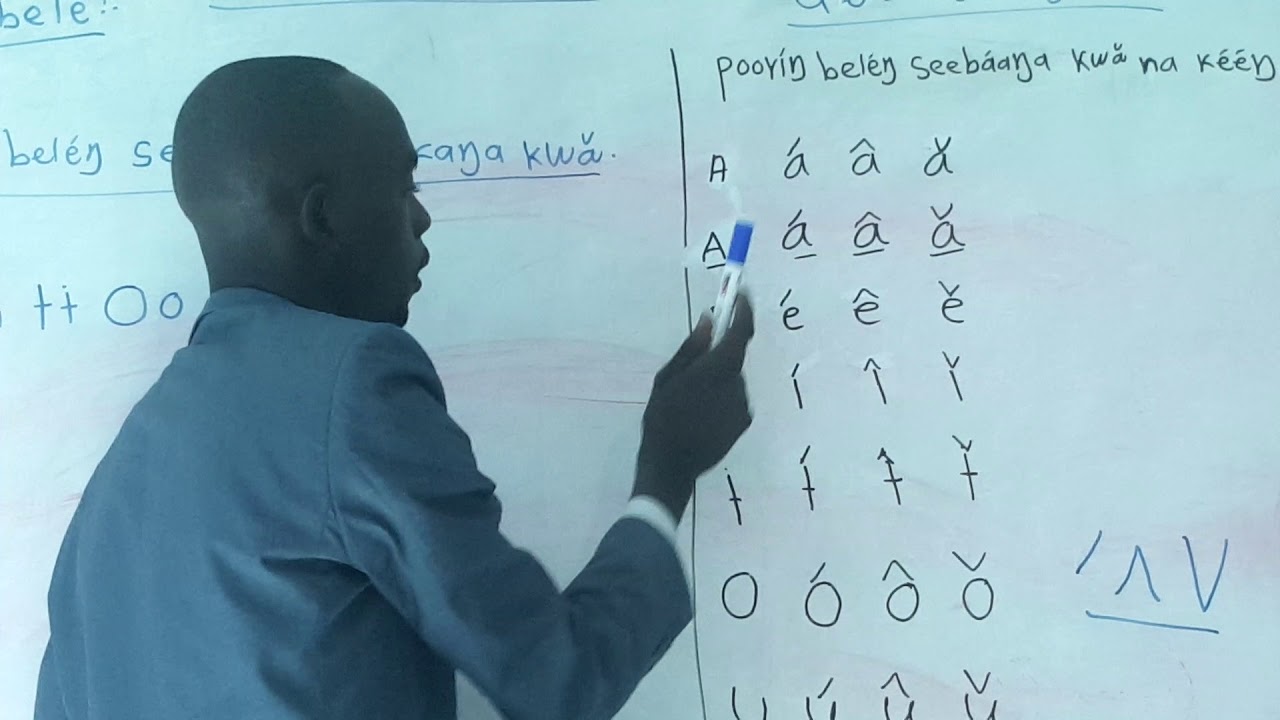 bele!.
beléŋ
kwǎ.
ɨɨ Oo
pooríŋ beléŋ seebáaŋa kwǎ na kééŋ
A á â ǎ
A̲ á̲ â̲ ǎ̲
é ê ě
í î ǐ
ɨ ɨ́ ɨ̂ ɨ̌
O ó ô ǒ
ˊ ʌ V
u ú û ǔ